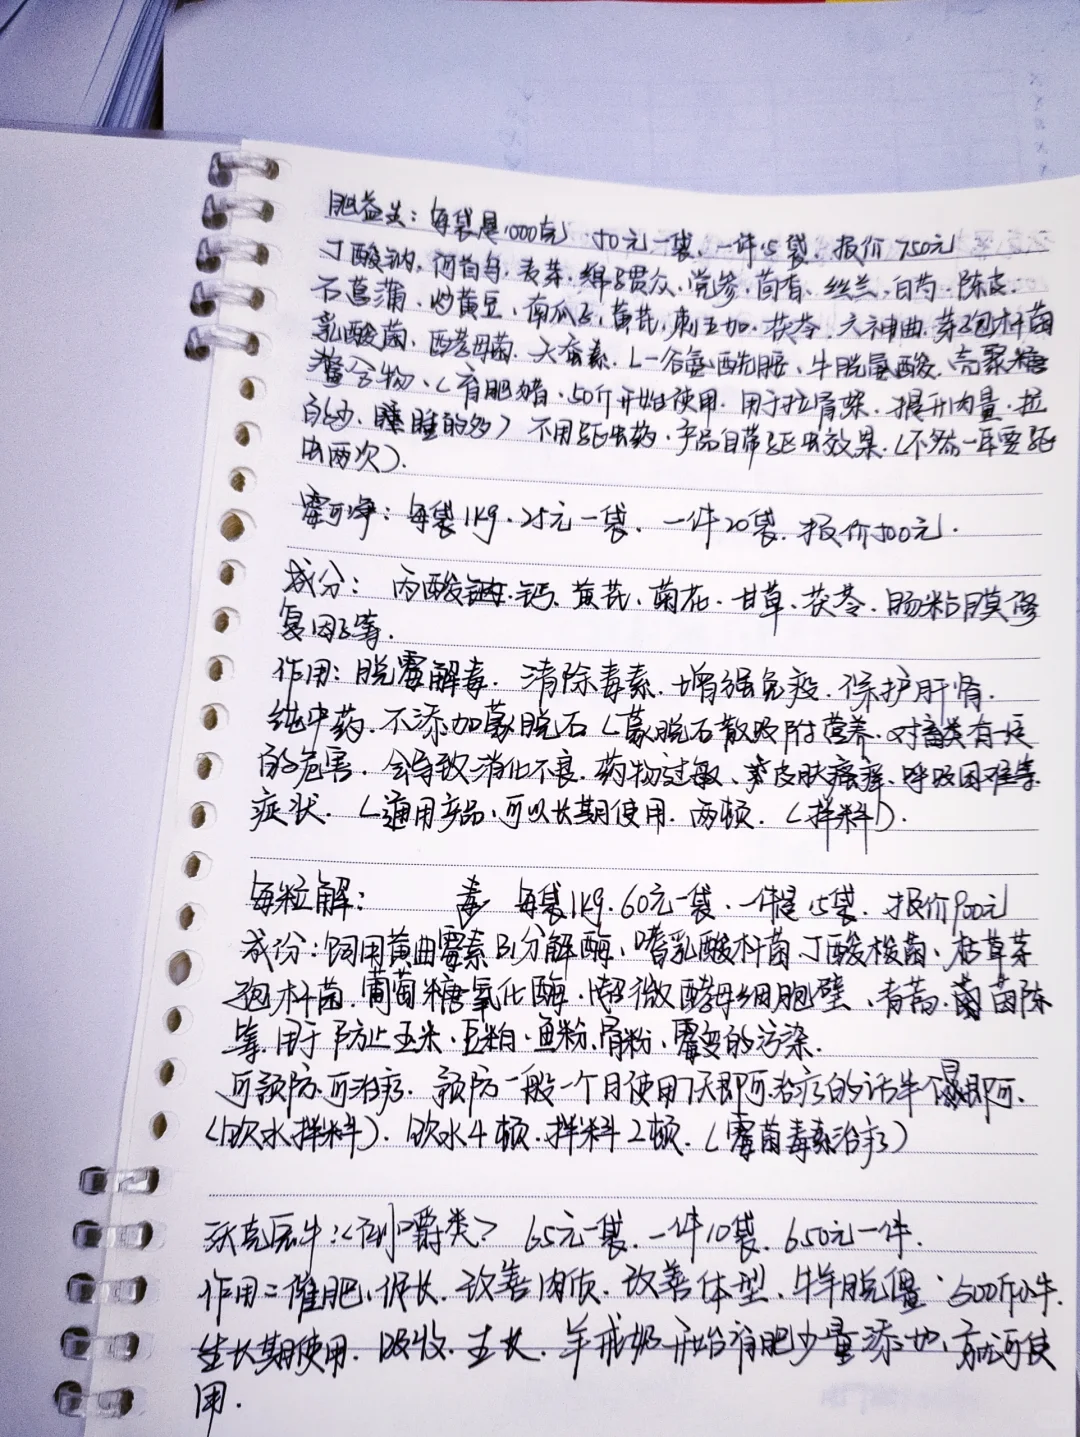 肥益美：每袋是1000克 50元一袋、一件15袋、报价750元
丁酸钠、何首乌、麦芽、绵马贯众、党参、茴香、丝兰、白芍、陈皮
石菖蒲、炒黄豆、南瓜子、黄芪、刺五加、茯苓、六神曲、芽孢杆菌
乳酸菌、酵母菌、天蚕素、L-谷氨酰胺、牛脱氧酸、壳聚糖
螯合物、（育肥猪、50斤开始使用、用于拉骨架、提升肉量、拉
的少、睡的多）不用驱虫药、产品自带驱虫效果、（不然一年要驱
虫两次）.
霉可净：每袋1kg、25元一袋、一件20袋、报价500元.
成分：丙酸钙、黄芪、菊花、甘草、茯苓、肠粘膜修
复因子等.
作用：脱霉解毒、清除毒素、增强免疫、保护肝肾、
纯中药、不添加蒙脱石（蒙脱石散吸附营养、对畜类有一定
的危害、会导致消化不良、药物过敏、皮肤瘙痒、呼吸困难等
症状、（通用产品、可以长期使用、两顿、（拌料）.
每粒解： 毒 每袋1kg、60元一袋、一件是15袋、报价900元
成份：饲用黄曲霉素B1分解酶、嗜乳酸杆菌、丁酸梭菌、枯草芽
孢杆菌、葡萄糖氧化酶、超微酵母细胞壁、青蒿、茵陈
等、用于防止玉米、豆粕、鱼粉、骨粉、霉变的污染.
可预防、可治疗、预防一般一个月使用7天即可、治疗的话半个月即可、
（饮水拌料）、饮水4顿、拌料2顿、（霉菌毒素治疗）
沃克反牛：（倒嚼类） 65元一袋、一件10袋、650元一件.
作用：催肥、促长、改善肉质、改善体型、牛羊脱僵、500斤小牛、
生长期使用、吸收、生长、羊戒奶开始育肥少量添加、方可使
用.